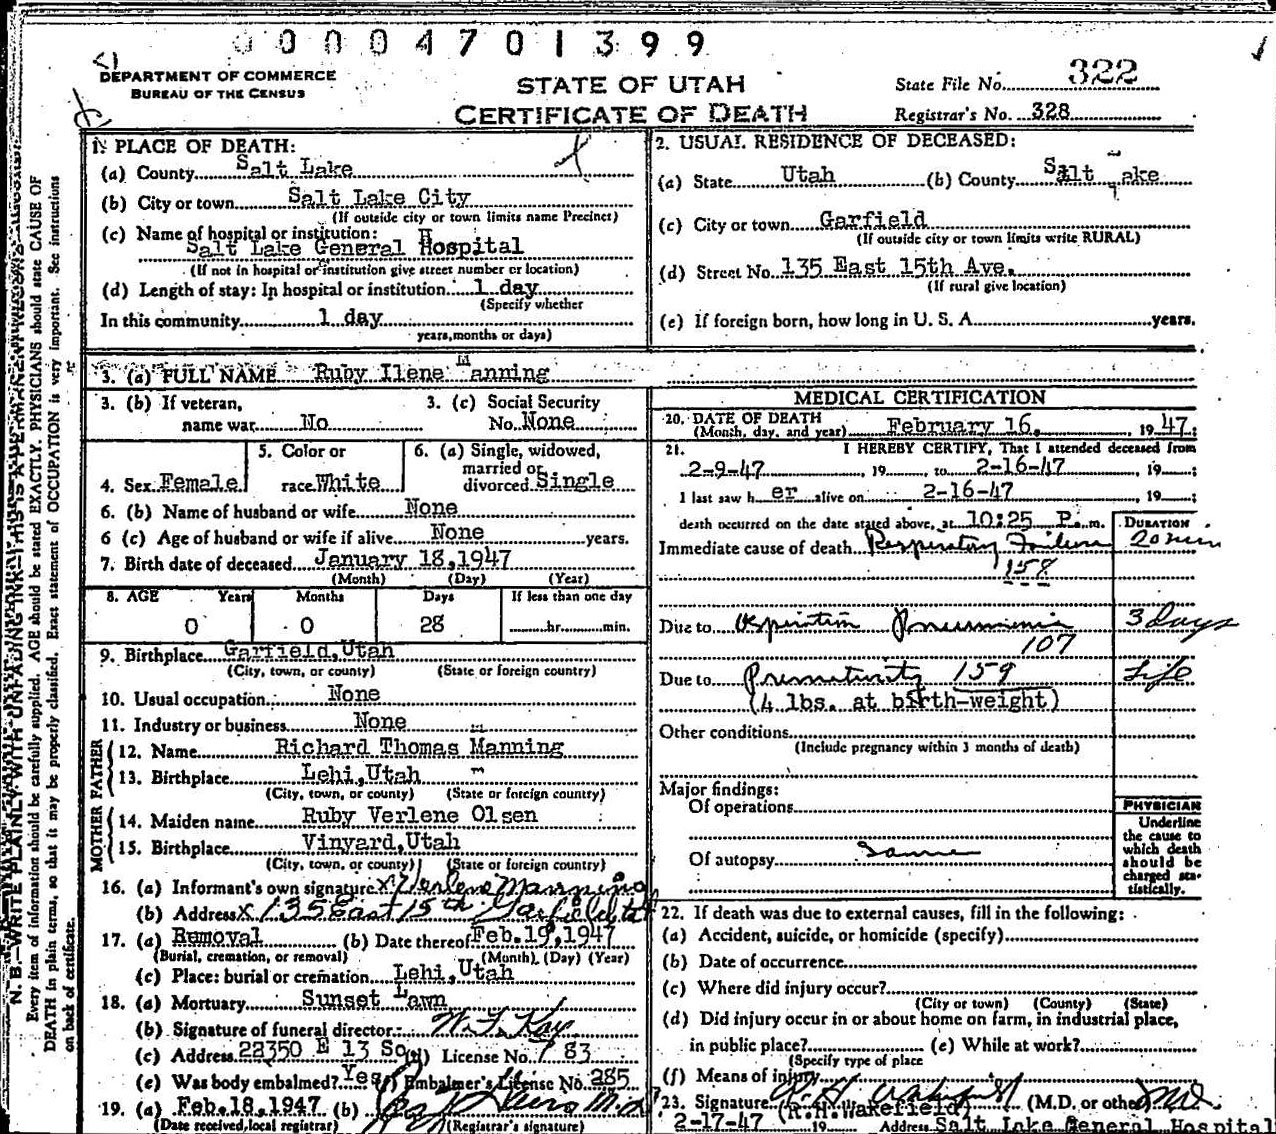 00004701399
DEPARTMENT OF COMMERCE
BUREAU OF THE CENSUS
STATE OF UTAH
CERTIFICATE OF DEATH
State File No. 322
Registrar's No. 328
N. B.—WRITE PLAINLY WITH UNFADING INK—THIS IS A PERMANENT RECORD
Every item of information should be carefully supplied. AGE should be stated EXACTLY. PHYSICIANS should state CAUSE OF
DEATH in plain terms, so that it may be properly classified. Exact statement of OCCUPATION is very important. See instructions
on back of certificate.
1. PLACE OF DEATH:
(a) County Salt Lake
(b) City or town Salt Lake City
(If outside city or town limits name Precinct)
(c) Name of hospital or institution:
Salt Lake General Hospital
(If not in hospital or institution give street number or location)
(d) Length of stay: In hospital or institution 1 day
(Specify whether
In this community 1 day
years, months or days)
2. USUAL RESIDENCE OF DECEASED:
(a) State Utah (b) County Salt Lake
(c) City or town Garfield
(If outside city or town limits write RURAL)
(d) Street No. 135 East 15th Ave.
(If rural give location)
(e) If foreign born, how long in U. S. A. years.
3. (a) FULL NAME Ruby Ilene Manning
3. (b) If veteran, name war No
3. (c) Social Security No. None
4. Sex Female
5. Color or race White
6. (a) Single, widowed, married or divorced Single
6. (b) Name of husband or wife None
6 (c) Age of husband or wife if alive None years.
7. Birth date of deceased January 18, 1947
(Month) (Day) (Year)
8. AGE Years Months Days If less than one day
0 0 28 hr. min.
9. Birthplace Garfield, Utah
(City, town, or county) (State or foreign country)
10. Usual occupation None
11. Industry or business None
FATHER
12. Name Richard Thomas Manning
13. Birthplace Lehi, Utah
(City, town, or county) (State or foreign country)
MOTHER
14. Maiden name Ruby Verlene Olsen
15. Birthplace Vinyard, Utah
(City, town, or county) (State or foreign country)
16. (a) Informant's own signature x Verlene Manning
(b) Address x 135 East 15th Garfield Ut
17. (a) Removal (b) Date thereof Feb. 19, 1947
(Burial, cremation, or removal) (Month) (Day) (Year)
(c) Place: burial or cremation Lehi, Utah
18. (a) Mortuary Sunset Lawn
(b) Signature of funeral director: Kay
(c) Address 22350 E 13 So. (d) License No. 83
(e) Was body embalmed? Yes (f) Embalmer's License No. 285
19. (a) Feb. 18, 1947 (b)
(Date received, local registrar) (Registrar's signature)
MEDICAL CERTIFICATION
20. DATE OF DEATH
(Month, day, and year) February 16, 1947;
21. I HEREBY CERTIFY, That I attended deceased from
2-9-47, 19 to 2-16-47, 19 ;
I last saw h er alive on 2-16-47, 19 ;
death occurred on the date stated above, at 10:25 P. m.
DURATION
Immediate cause of death Respiratory Failure 20 min
158
Due to Aspiration Pneumonia 3 days
107
Due to Prematurity 159 Life
(4 lbs. at birth-weight)
Other conditions
(Include pregnancy within 3 months of death)
Major findings:
Of operations
Of autopsy Same
PHYSICIAN
Underline
the cause to
which death
should be
charged sta-
tistically.
22. If death was due to external causes, fill in the following:
(a) Accident, suicide, or homicide (specify)
(b) Date of occurrence
(c) Where did injury occur?
(City or town) (County) (State)
(d) Did injury occur in or about home on farm, in industrial place,
in public place? (e) While at work?
(Specify type of place
(f) Means of injury
23. Signature R. H. Wakefield (M.D. or other) MD
(R.H.Wakefield)
2-17-47 19 Address Salt Lake General Hospital